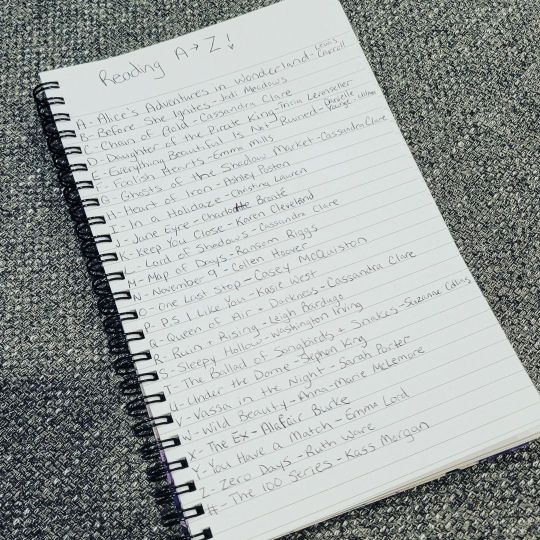 Reading A→Z!
A - Alice's Adventures in Wonderland - Lewis Carroll
B - Before She Ignites - Jodi Meadows
C - Chain of Gold - Cassandra Clare
D - Daughter of the Pirate King - Tricia Levenseller
E - Everything Beautiful Is Not Ruined - Danielle Younge-Ullman
F - Foolish Hearts - Emma Mills
G - Ghosts of the Shadow Market - Cassandra Clare
H - Heart of Iron - Ashley Poston
I - In a Holidaze - Christina Lauren
J - Jane Eyre - Charlotte Brontë
K - Keep You Close - Karen Cleveland
L - Lord of Shadows - Cassandra Clare
M - Map of Days - Ransom Riggs
N - November 9 - Collen Hoover
O - One Last Stop - Casey McQuiston
P - P.S. I Like You - Kasie West
Q - Queen of Air + Darkness - Cassandra Clare
R - Ruin + Rising - Leigh Bardugo
S - Sleepy Hollow - Washington Irving
T - The Ballad of Songbirds + Snakes - Suzanne Collins
U - Under the Dome - Stephen King
V - Vassa in the Night - Sarah Porter
W - Wild Beauty - Anna-Marie McLemore
X - The Ex - Alafair Burke
Y - You Have a Match - Emma Lord
Z - Zero Days - Ruth Ware
# - The 100 Series - Kass Morgan